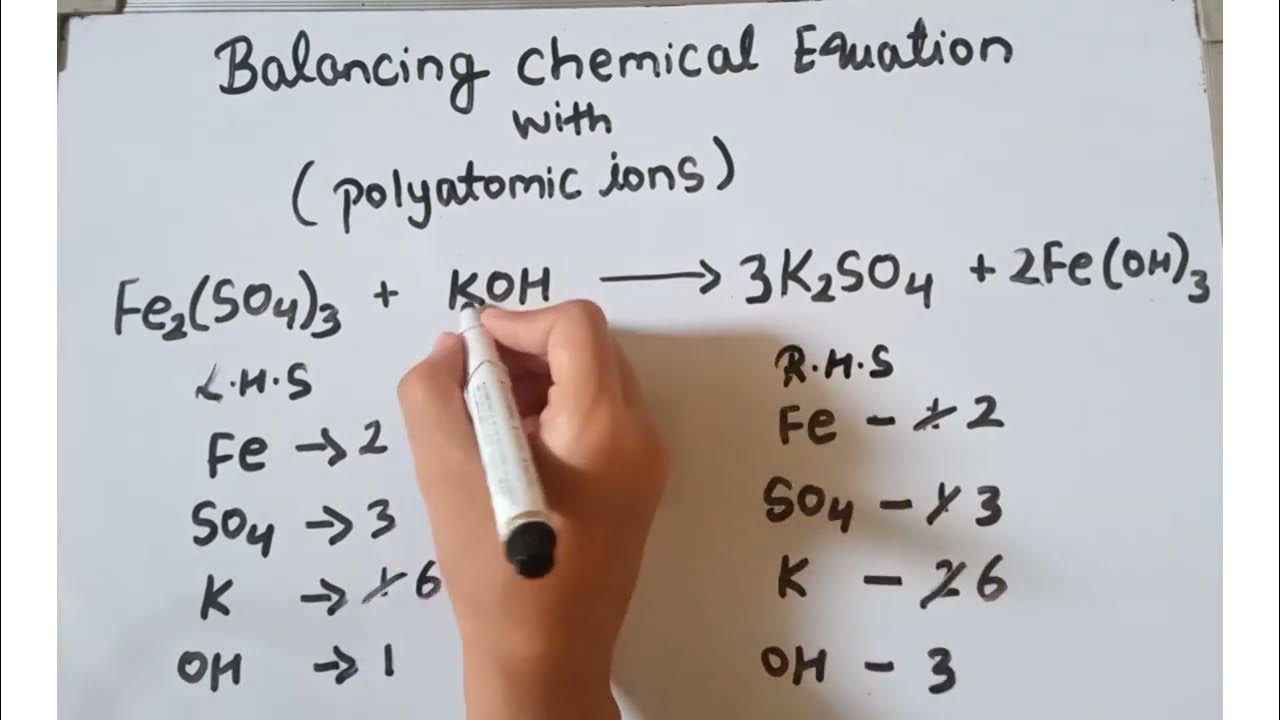 Balancing chemical Equation
with
(polyatomic ions)
Fe₂(SO₄)₃ + KOH ⟶ 3K₂SO₄ + 2Fe(OH)₃
L.H.S
Fe → 2
SO₄ → 3
K → 1 6
OH → 1
R.H.S
Fe - 1 2
SO₄ - 1 3
K - 2 6
OH - 3